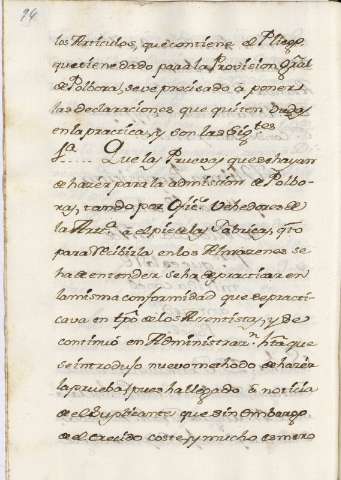 94
los Articulos, que contiene el Pliego
que tiene dado para la Provision Gral
de Polbora, se ve precisado à poner
las declaraciones que quiten dudas
en la practica, y son las sigtes
1ª Que las Pruevas que se hayan
de hazer para la admission de Polbo-
ras, tando por Ofizs Vehedores de
la Artª à el pie de las Fabricas, qto
para Rezibirla en los Almazenes se
ha de entender se ha de practicar en
la misma conformidad que se practi-
cava en tpõ de los Asentistas, y se
continuó en Administraron hta que
se introdujo nuevo methodo de hazer
la prueba; pues ha llegado à noticia
de el Suplicante que sin embargo
de el crecido coste, y mucho esmero